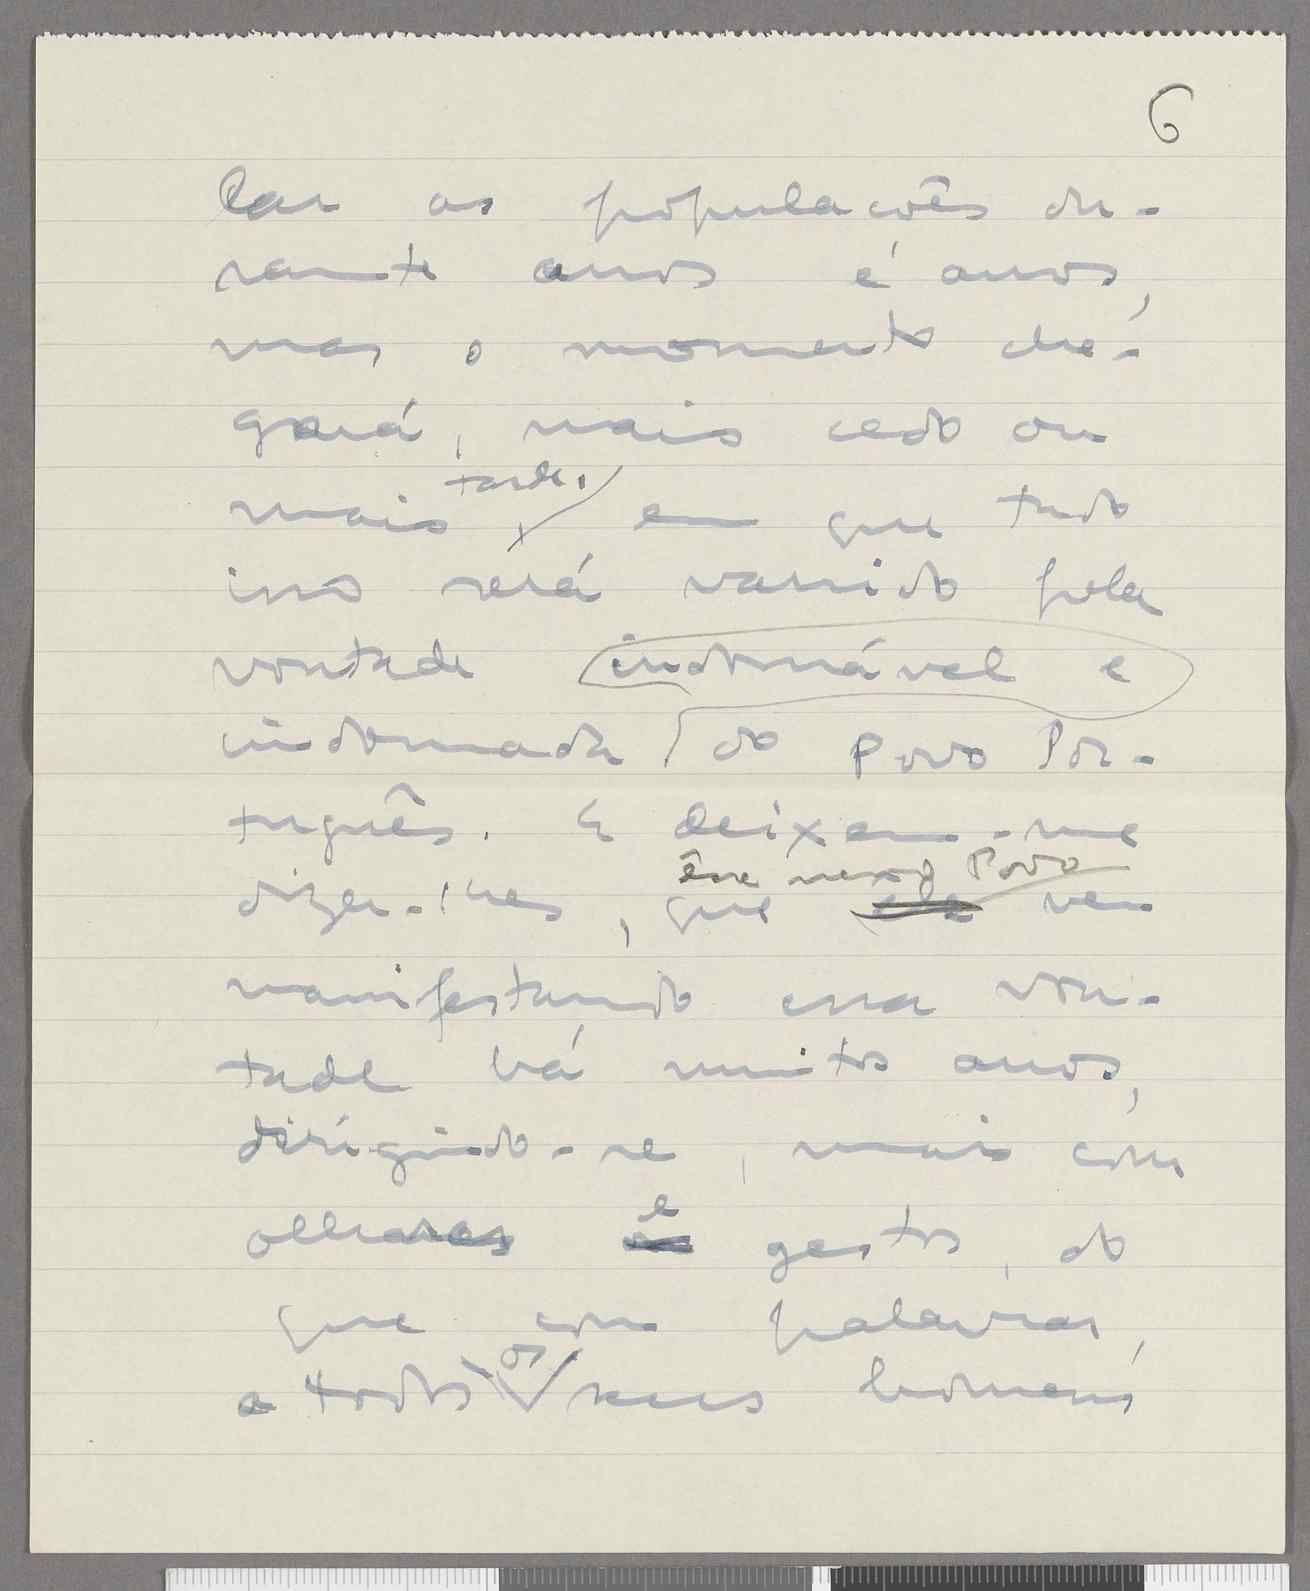 6
lar as populacoẽs du-
rante anos e anos,
mas o momento che-
gará, mais cedo ou
mais tarde, em que tudo
isso será varrido pela
vontade indomável e
indomada do Povo Por-
tuguês. E deixem-me
dizer-lhes, que êsse nosso Povo vem
manifestando essa von-
tade há muitos anos,
dirigindo-se, mais com
olhares e gestos, do
que com palavras,
a todos os seus homens